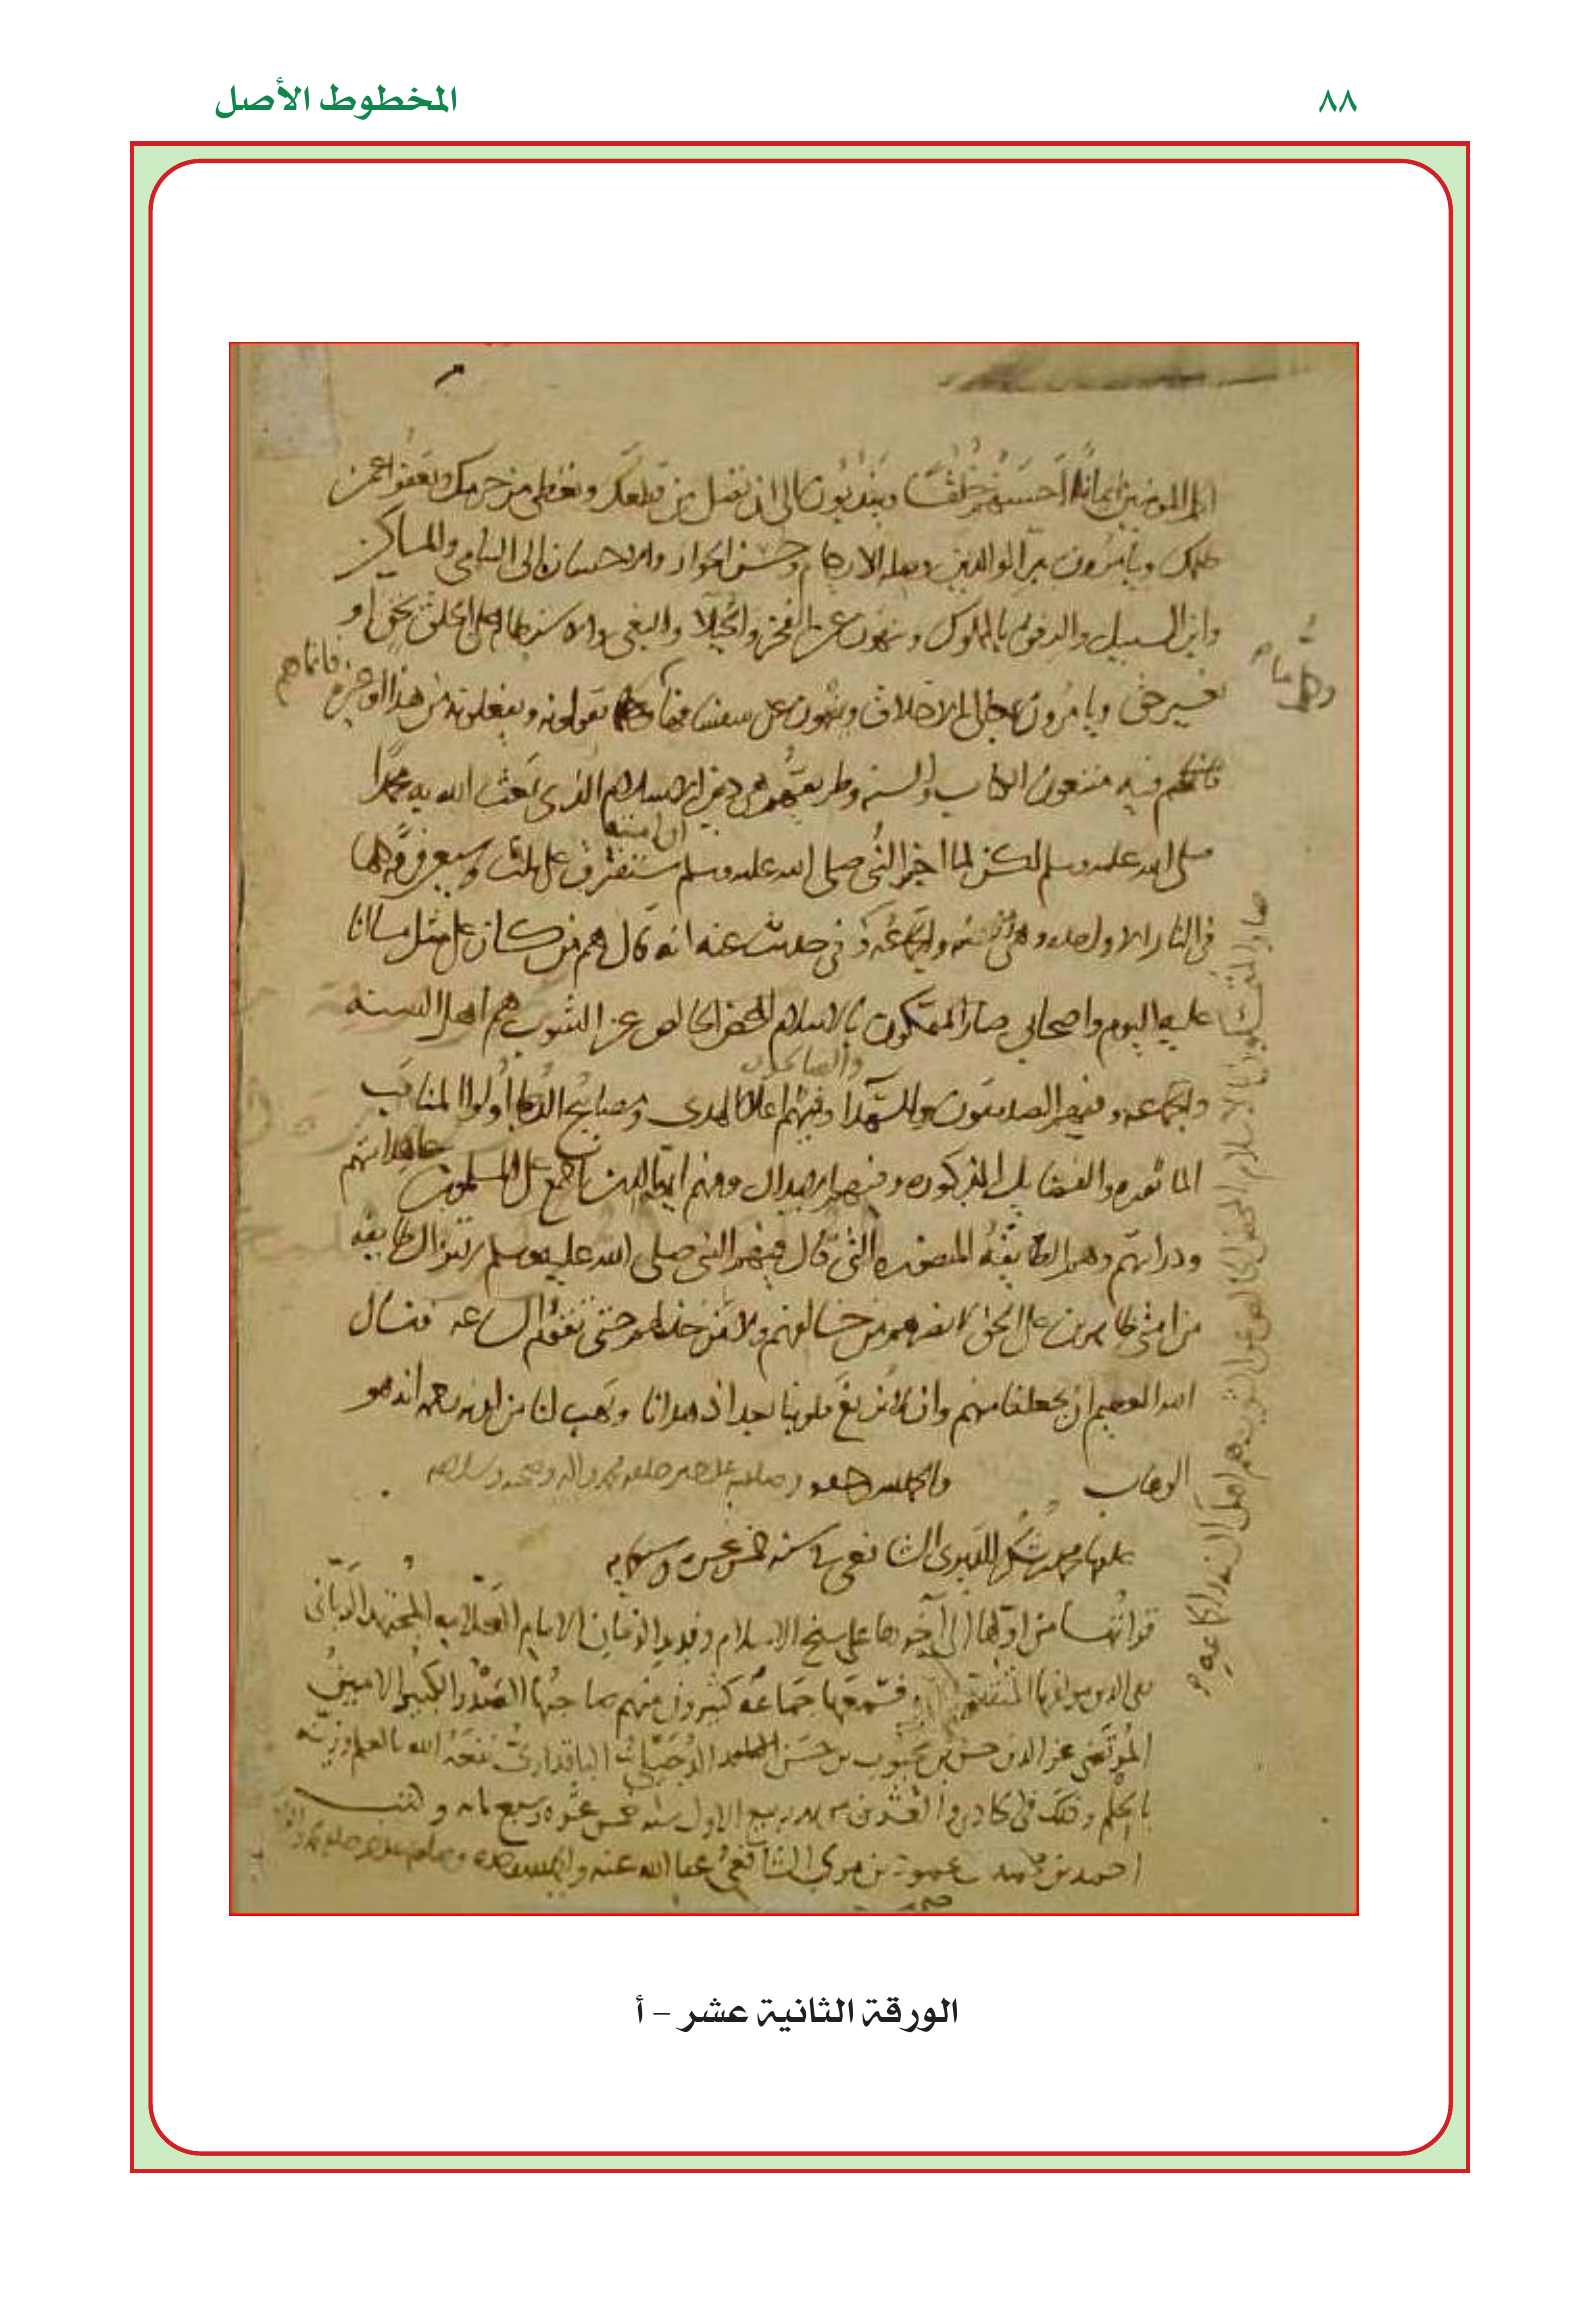 ٨٨
المخطوط الأصل
اكمل المومنين ايمانا احسنهم خلقا ويندبون الى ان تصل من قطعك وتعطى من حرمك وتعفوا عمن
ظلمك ويأمرون ببر الوالدين وصله الارحام وحسن الجوار والاحسان الى اليتامى والمساكين
وابن السبيل والرفق بالمملوك وينهون عن الفخر والخيلا والبغى والاستطاله على الخلق بحق او
بغير حق ويامرون بمعالى الاخلاق وينهون عن سفسافها وكلما يقولونه ويفعلونه من هذا او غيره فانما هم
وكل ما
فيه متبعون الكتاب والسنه وطريقتهم هى دين الاسلام الذى بعث الله به محمدا
صلى الله عليه وسلم لكن لما اخبر النبى صلى الله عليه وسلم ان امته ستفترق على ثلث وسبعين فرقه كلها
فى النار الا واحده وهى الجماعه وفى حديث عنه انه قال هم من كان على مثل ما انا
عليه اليوم واصحابى صار المتمسكون بالاسلام المحض الخالص عن الشوب هم اهل السنه
والجماعه وفيهم الصديقون والشهدا والصالحون وفيهم اعلام الهدى ومصابيح الدجا اولوا المناقب
الماثوره والفضايل المذكوره وفيهم الابدال ومنهم ايمه الذين اجمع المسلمون على هدايتهم
ودرايتهم وهم الطايفه المنصوره التى قال فيهم النبى صلى الله عليه وسلم لا تزال طايفه
من امتى ظاهرين على الحق لا يضرهم من خالفهم ولا من خذلهم حتى تقوم الساعه فنسال
الله العظيم ان يجعلنا منهم وان لا يزيغ قلوبنا بعد اذ هدانا ويهب لنا من لدنه رحمه انه هو
الوهاب والحمد لله وحده وصلواته على خير خلقه محمد واله وصحبه وسلامه
الشافعى فى سنه خمس عشره وسبعمايه
قراتها من اولها الى آخرها على شيخ الاسلام وفريد الزمان الامام العلامه المجتهد الربانى
تقى الدين مولفها فسمعها جماعه كثيرون منهم صاحبها الصدر الكبير الامين
المرتضى عز الدين حسن بن حسن نفعه الله بالعلم وزينه
بالحلم وذلك فى حادى والعشرين من شهر ربيع الاول سنه خمس عشره وسبع مايه وكتب
احمد بن محمد بن مرى الشافعى عفا الله عنه والحمد لله وحده
صار المتمسكون بالاسلام المحض الخالص عن الشوب هم اهل السنه والجماعه
الورقة الثانية عشر – أ